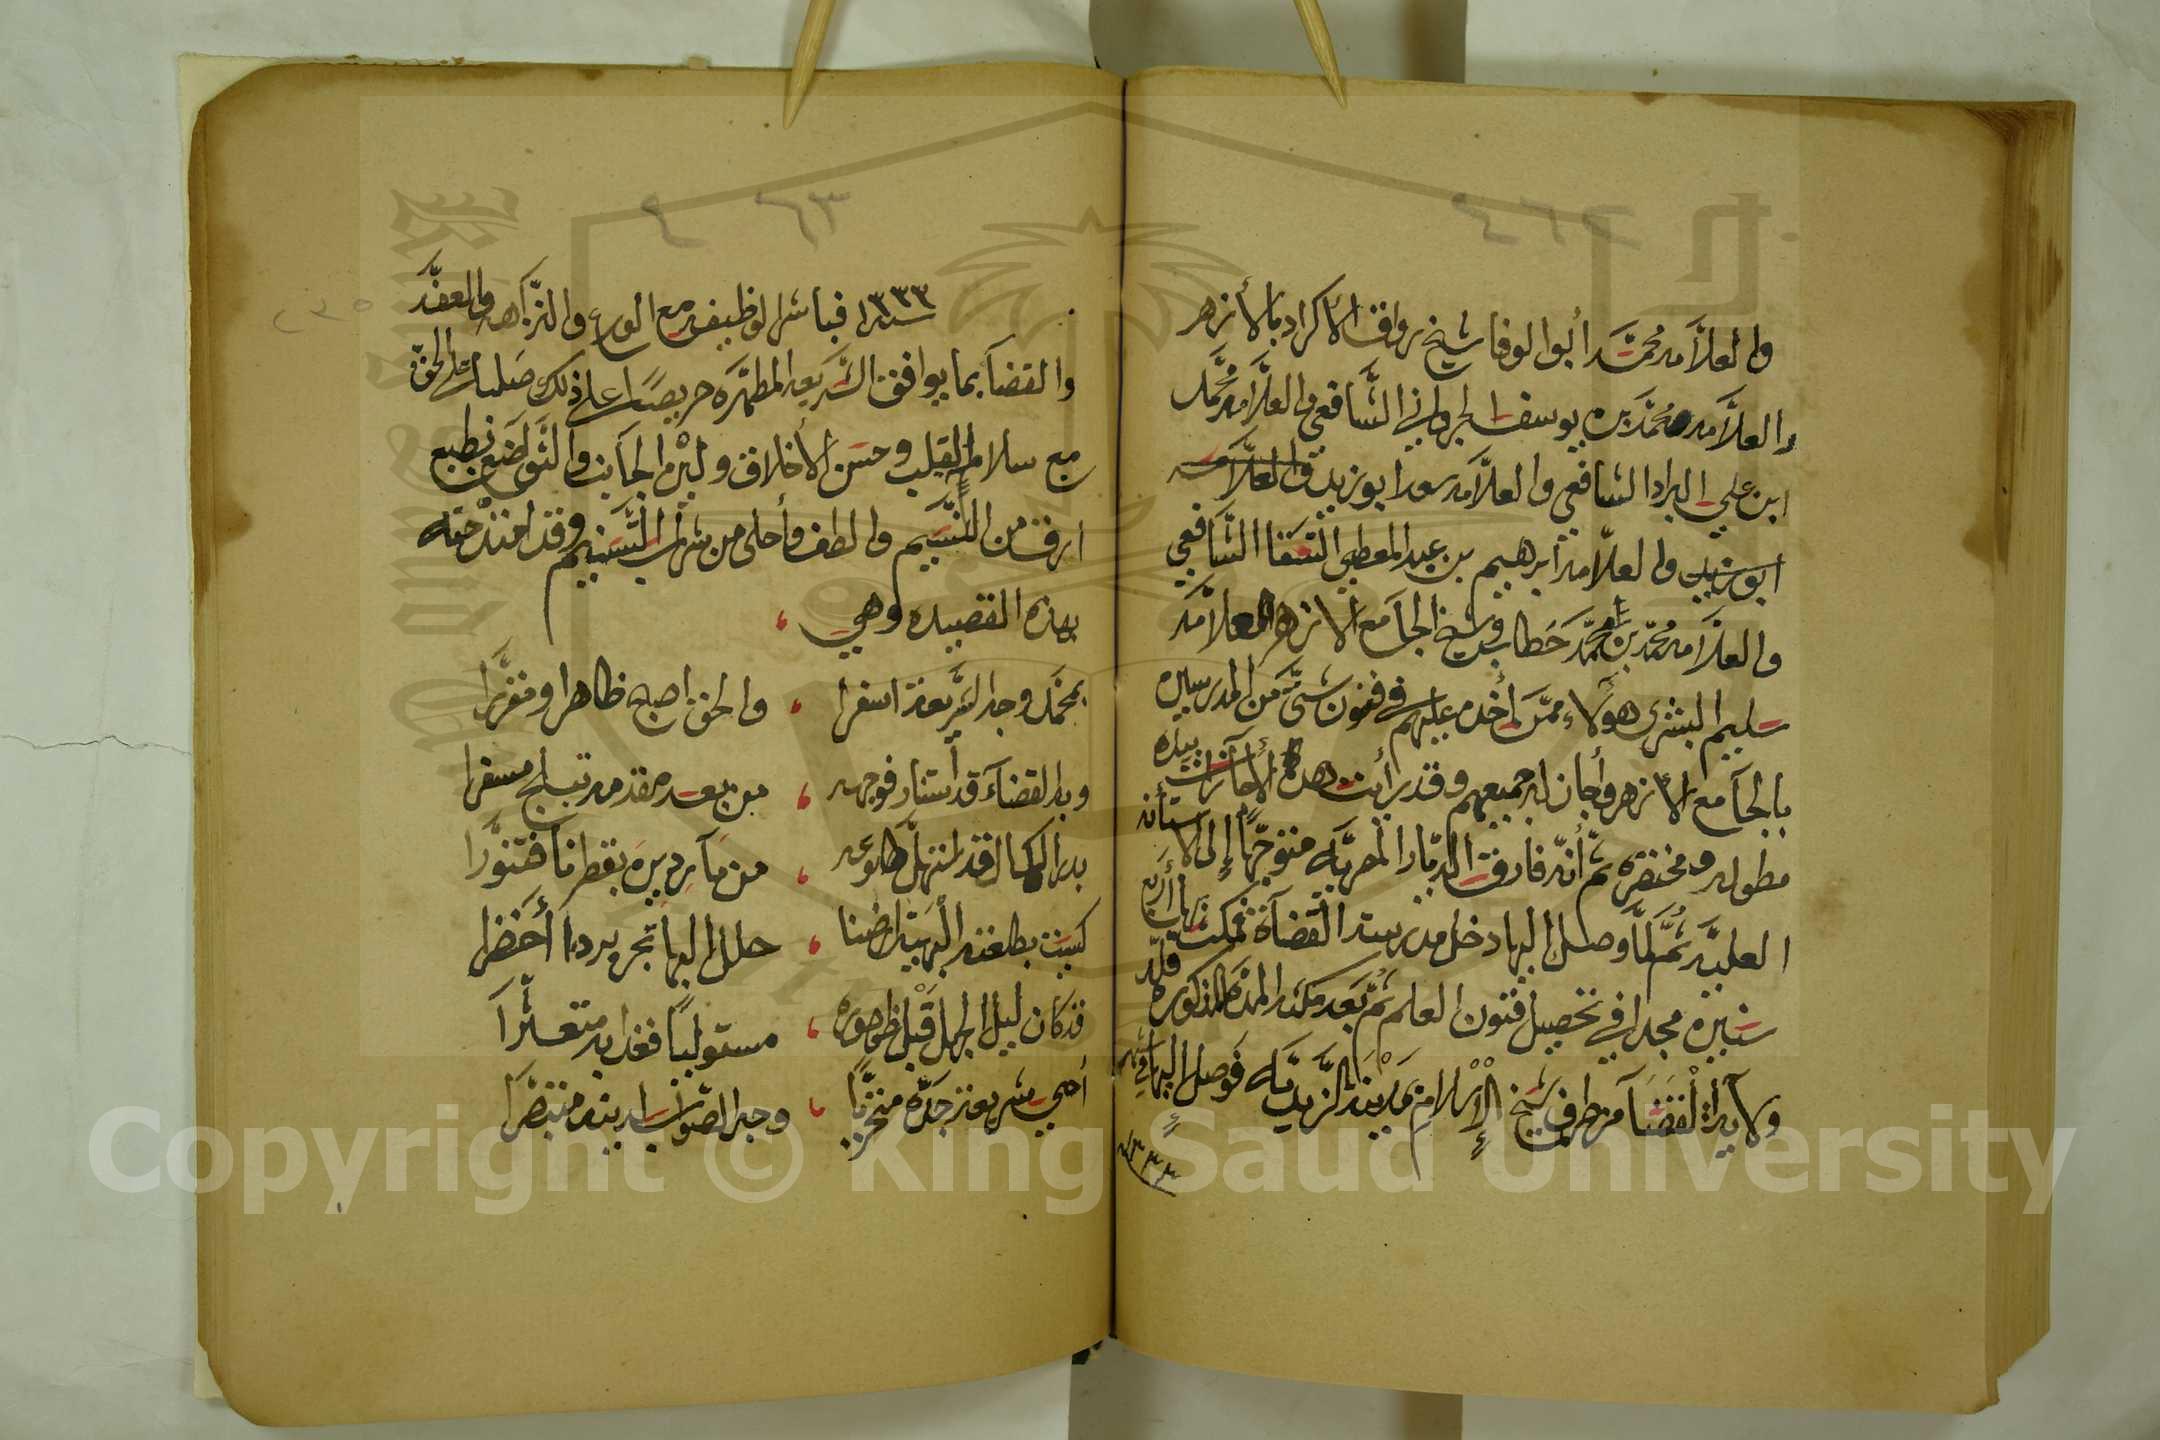 والعلامه محمد أبو الوفا شيخ رواق الاكراد بالأزهر
والعلامه محمد بن يوسف الجرداني الشافعي والعلامه محمد
ابن علي البراد الشافعي والعلامه سعد ابو زيد والعلامه
ابو زيد والعلامه ابرهيم بن عبد المعطي السقا الشافعي
والعلامه محمد بن محمد خطاب وشيخ الجامع الازهر العلامه
سليم البشرى هولاء ممن أخذ عليهم في فنون شتى من المدرسين
بالجامع الأزهر وأجازه جميعهم وقد رأيت هذه الأجازات بيده
مطوله ومختصره ثم أنه فارق الديار المصريه متوجها إلى الأستانه
العليه ثم لما وصل اليها دخل مدرسة القضاة فمكث بها أربع
سنين مجدا في تحصيل فنون العلم ثم بعد مكثه المدة المذكوره قلد
ولاية القضا من طرف شيخ الإسلام بمدينة الزيديه فوصل اليها في شهر
١٣٣٣
٢٣٤
٢٣٥
سنة ١٣٣٣ فباشر الوظيفه مع الورع والنزاهه والعفه
والقضا بما يوافق الشريعه المطهره حريصا على ذلك صلبا على الحق
مع سلامة القلب وحسن الأخلاق ولين الجانب والتواضع بطبع
ارق من النسيم والطف وأحلى من شراب التسنيم وقد امتدحته
بهذه القصيده وهي
بمحمد وجه الشريعة اسفرا ، والحق اصبح ظاهرا ومقررا
وبه القضاء قد استنار فوجهه ، من بعد فقده تبلج مسفرا
بدر الكمال قد استهل طلوعه ، من ماردين بقطرنا فتنورا
كسيت بطلعته البهية ارضنا ، حلل البها تجر بردا أخضرا
قد كان ليل الجهل قبل ظهوره ، مستوليا فغدا به متعثرا
أحيى شريعة جده متحريا ، وجه الصواب لدينه متبصرا
Copyright © King Saud University